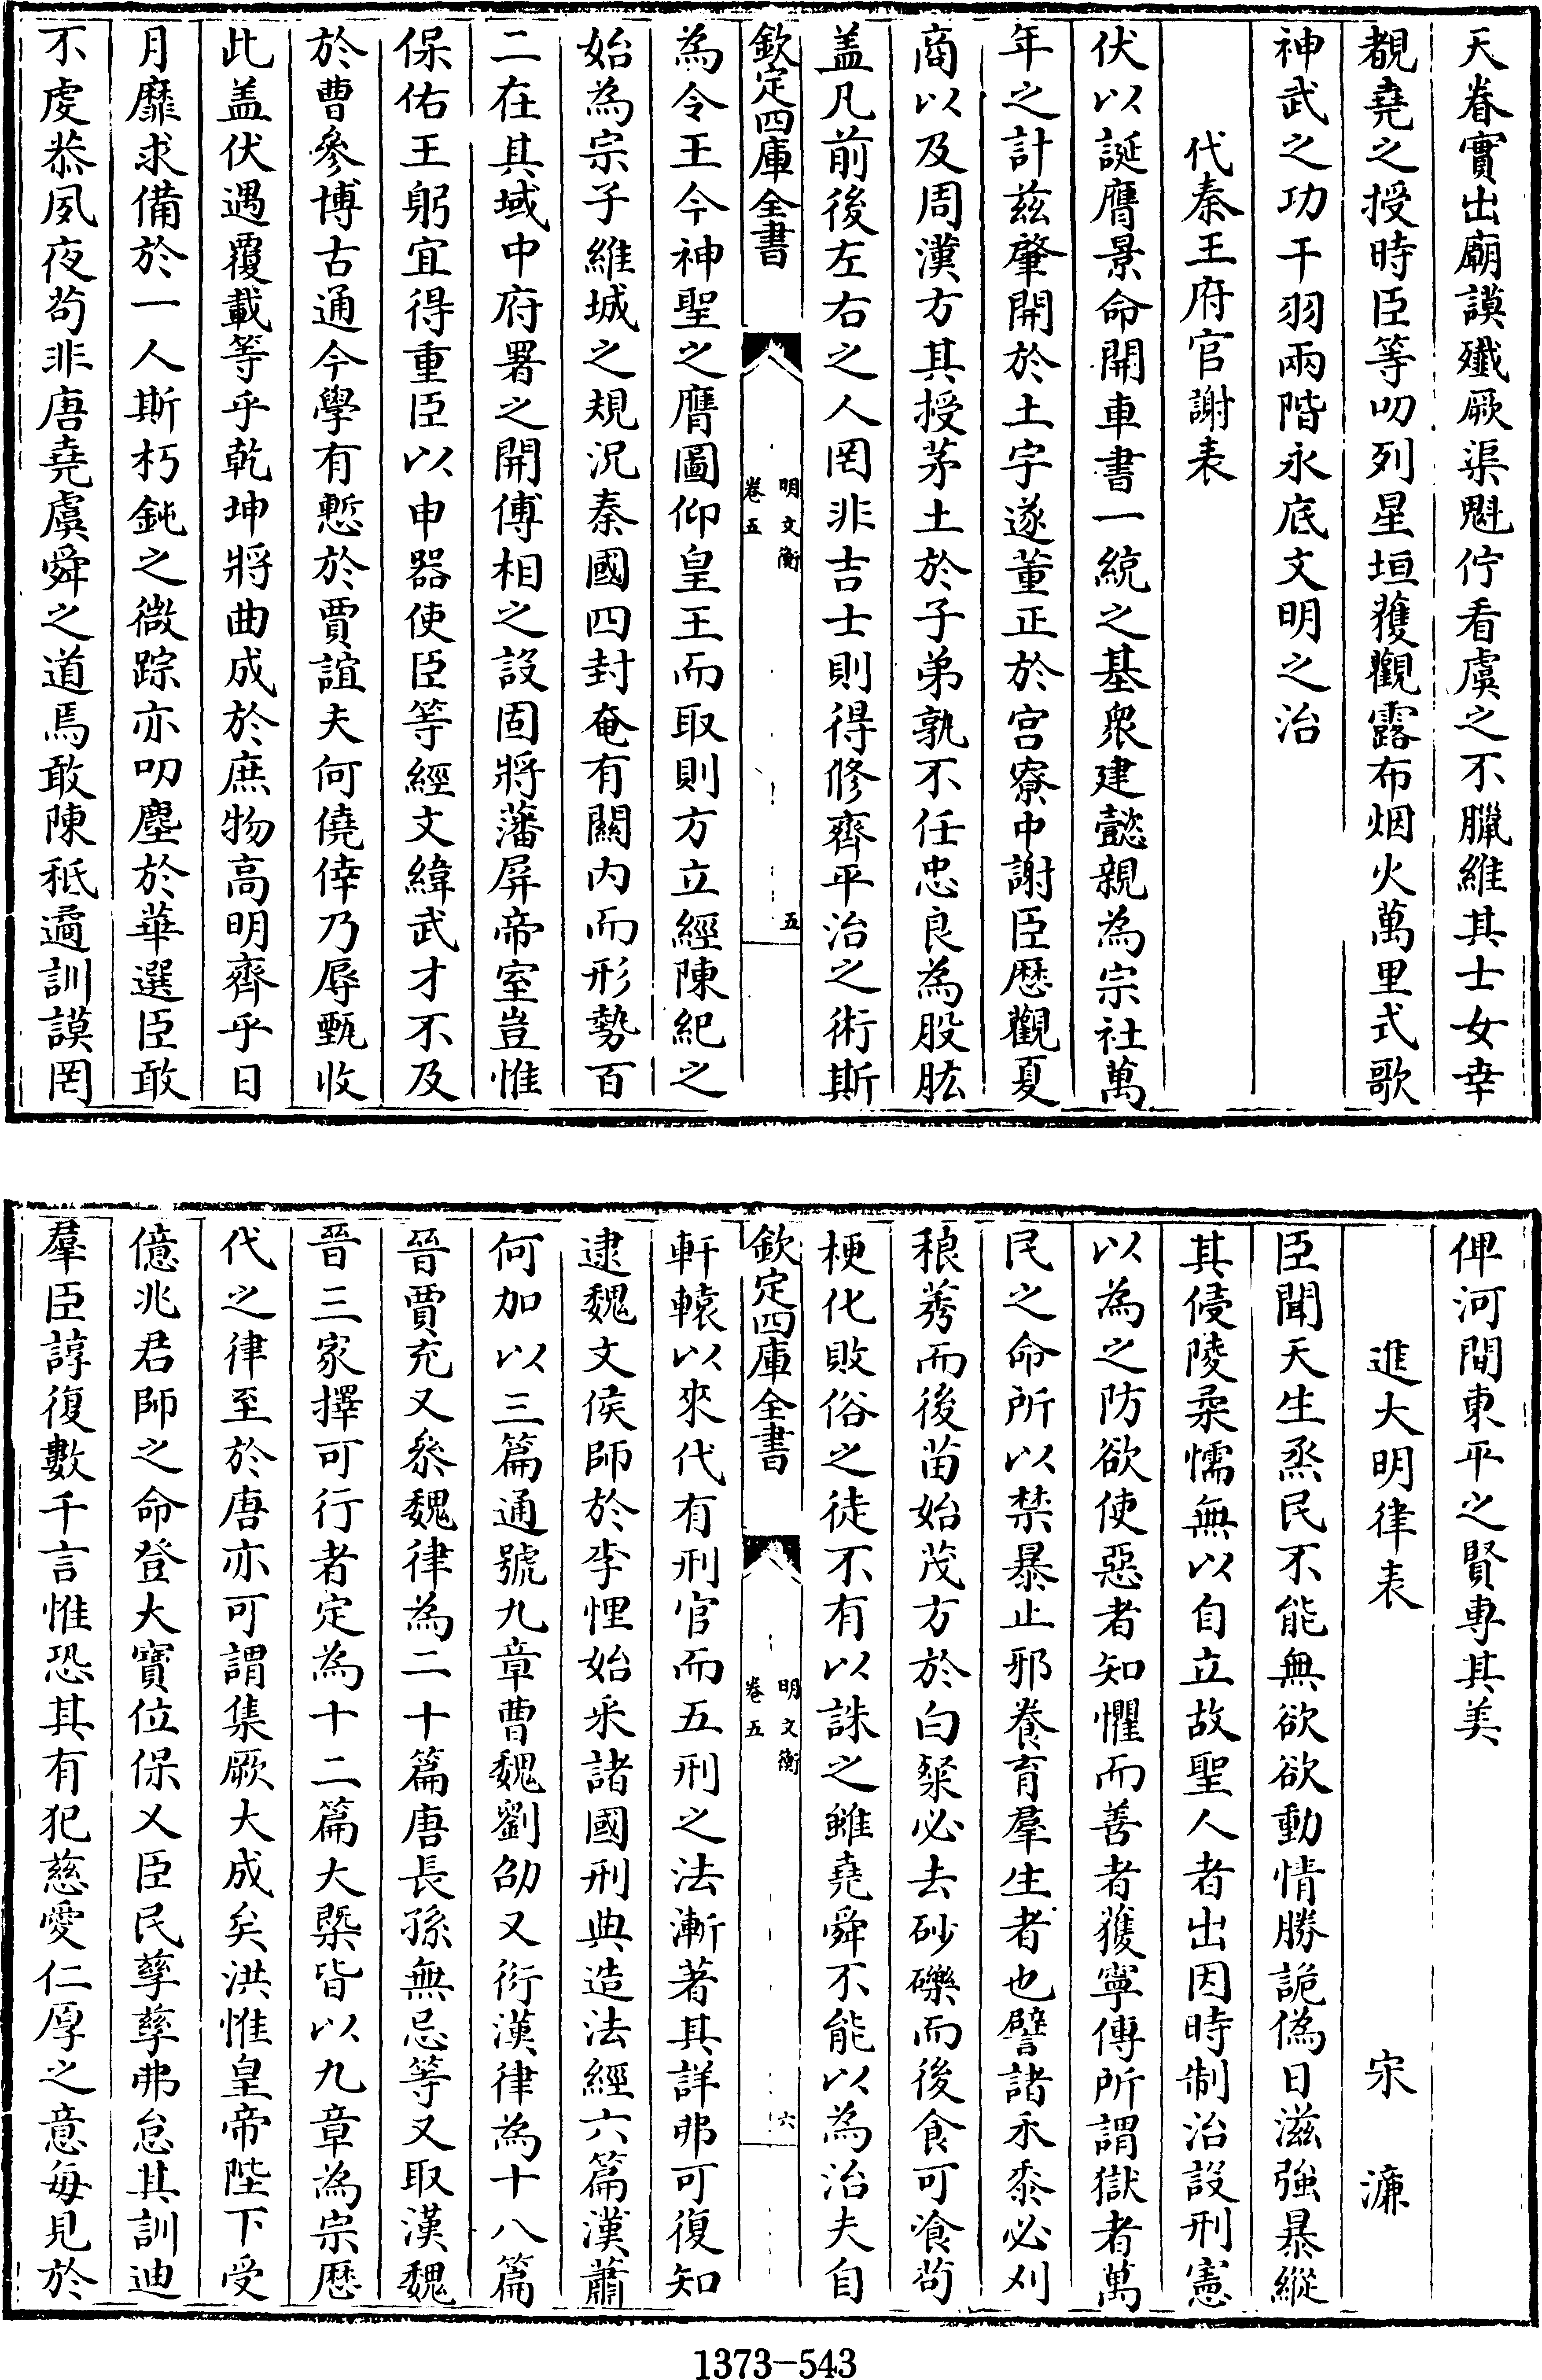 天眷實出廟謨殲厥渠魁佇看虞之不臘維其士女幸
覩堯之授時臣等叨列星垣獲觀露布烟火萬里式歌
神武之功干羽兩階永底文明之治
代秦王府官謝表
伏以誕膺景命開車書一統之基衆建懿親為宗社萬
年之計茲肇開於土宇遂董正於宫寮中謝臣厯觀夏
商以及周漢方其授茅土於子弟孰不任忠良為股肱
盖凡前後左右之人罔非吉士則得修齊平治之術斯
欽定四庫全書
明文衡
卷五
五
為令王今神聖之膺圖仰皇王而取則方立經陳紀之
始為宗子維城之規況秦國四封奄有關内而形勢百
二在其域中府署之開傅相之設固將藩屏帝室豈惟
保佑王躬宜得重臣以申器使臣等經文緯武才不及
於曹參博古通今學有慙於賈誼夫何僥倖乃辱甄收
此盖伏遇覆載等乎乾坤將曲成於庶物高明齊乎日
月靡求備於一人斯朽鈍之微踪亦叨塵於華選臣敢
不虔恭夙夜苟非唐堯虞舜之道焉敢陳秪遹訓謨罔
俾河間東平之賢専其美
進大明律表
宋濂
臣聞天生烝民不能無欲欲動情勝詭偽日滋強暴縱
其侵陵柔懦無以自立故聖人者出因時制治設刑憲
以為之防欲使惡者知懼而善者獲寧傳所謂獄者萬
民之命所以禁暴止邪養育羣生者也譬諸禾黍必刈
稂莠而後苗始茂方於白粲必去砂礫而後食可飡苟
梗化敗俗之徒不有以誅之雖堯舜不能以為治夫自
欽定四庫全書
明文衡
卷五
六
軒轅以來代有刑官而五刑之法漸著其詳弗可復知
逮魏文侯師於李悝始采諸國刑典造法經六篇漢蕭
何加以三篇通號九章曹魏劉劭又衍漢律為十八篇
晉賈充又叅魏律為二十篇唐長孫無忌等又取漢魏
晉三家擇可行者定為十二篇大槩皆以九章為宗厯
代之律至於唐亦可謂集厥大成矣洪惟皇帝陛下受
億兆君師之命登大寶位保乂臣民孳孳弗怠其訓迪
羣臣諄復數千言惟恐其有犯慈愛仁厚之意每見於
1373-543